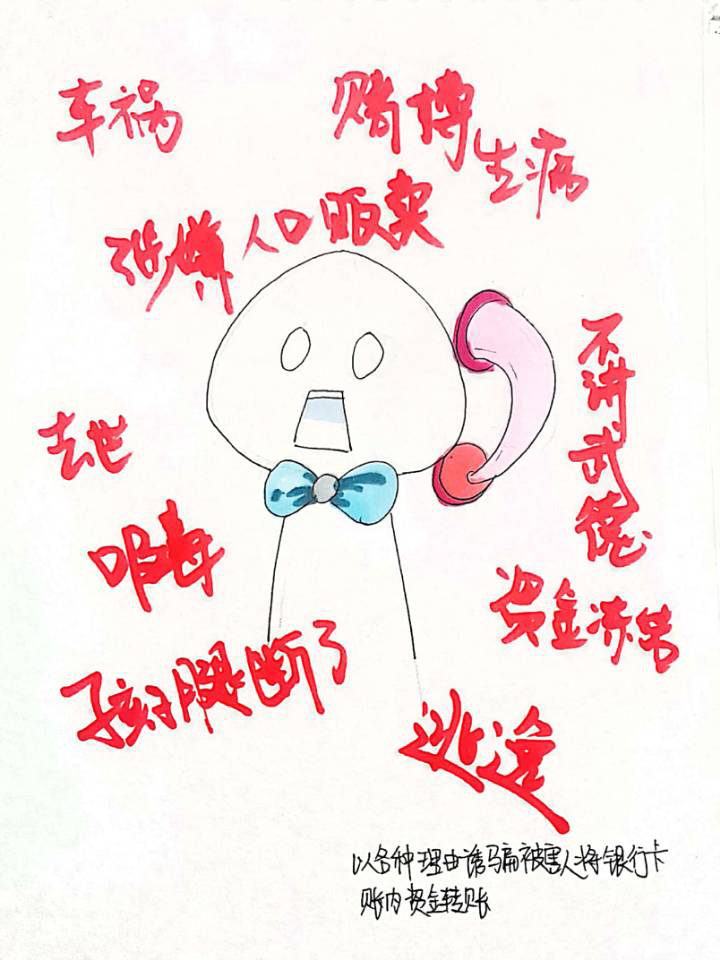 车祸
赌博
生病
涉嫌人口贩卖
不讲武德
去世
吸毒
资金冻结
孩子腿断了
逃逸
以各种理由诱骗被害人将银行卡
账内资金转账